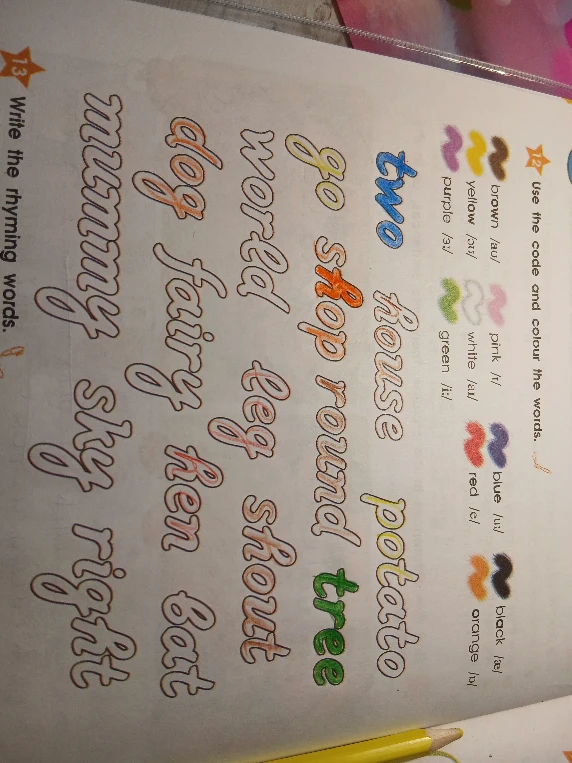 12 Use the code and colour the words.
brown /aʊ/ pink /ɪ/ blue /uː/ black /æ/
yellow /əʊ/ white /aɪ/ red /e/ orange /ɒ/
purple /ɜː/ green /iː/
two house potato
go shop round tree
world leg shout
dog fairy hen bat
mummy sky right
13 Write the rhyming words.